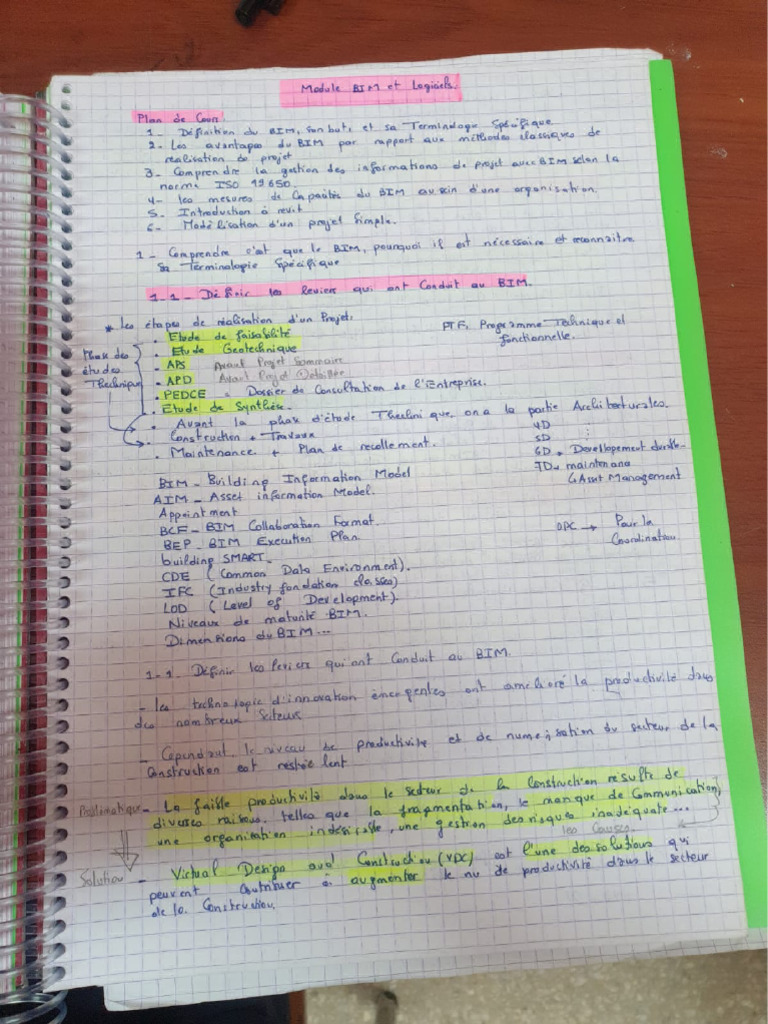 Module BIM et Logiciels.
Plan de Cours:
1- Définition du BIM, son buts et sa Terminologie Spécifique
2- Les avantages du BIM par rapport aux méthodes classiques de
réalisation de projet
3- Comprendre la gestion des informations de projet avec BIM selon la
norme ISO 19650.
4- les mesures de Capacités du BIM au sein d'une organisation.
5- Introduction à revit
6- Modélisation d'un projet Simple.
1- Comprendre c'est que le BIM, pourquoi il est nécessaire et reconnaitre
sa Terminologie Spécifique
1-1- Définir les leviers qui ont Conduit au BIM.
* Les étapes de réalisation d'un Projet:
PTF, Programme Technique et
fonctionnelle.
Phase des
études
Thechnique
. Etude de faisabilité
. Etude Geotechnique
. APS Avant Projet Sommaire
. APD Avant Projet Détaillée
. PEDCE = Dossier de Consultation de l'Entreprise.
. Etude de Synthèse.
. Avant la phase d'étude Thechnique, on a la partie Architecturales.
. Construction + Travaux
. Maintenance + Plan de recollement.
4D
5D :
6D → Developement durable
7D → maintenance
↳ Asset Management
BIM - Building Information Model
AIM - Asset information Model.
Appointment
BCF - BIM Collaboration Format.
BEP - BIM Execution Plan
OPC → Pour la
Coordination
building SMART
CDE (Common Data Environment).
IFC (Industry fondation classes)
LOD (Level of Development).
Niveaux de maturité BIM.
Dimensions du BIM...
1-1. Définir les leviers qui ont Conduit au BIM.
- les technologie d'innovation émergentes ont amélioré la productivité dans
des nombreux Secteurs
- Cependant, le niveau de productivité et de numérisation du secteur de la
Construction est resté lent
Problématique - La faible productivité dans le secteur de la Construction résulte de
diverses raisons, telles que la fragmentation, le manque de Communication,
une organisation, une gestion des risques inadéquate...
les Causes
Solution - Virtual Design and Construction (VDC) est l'une des solutions qui
peuvent Contribuer à augmenter le de productivité dans le secteur
de la Construction.